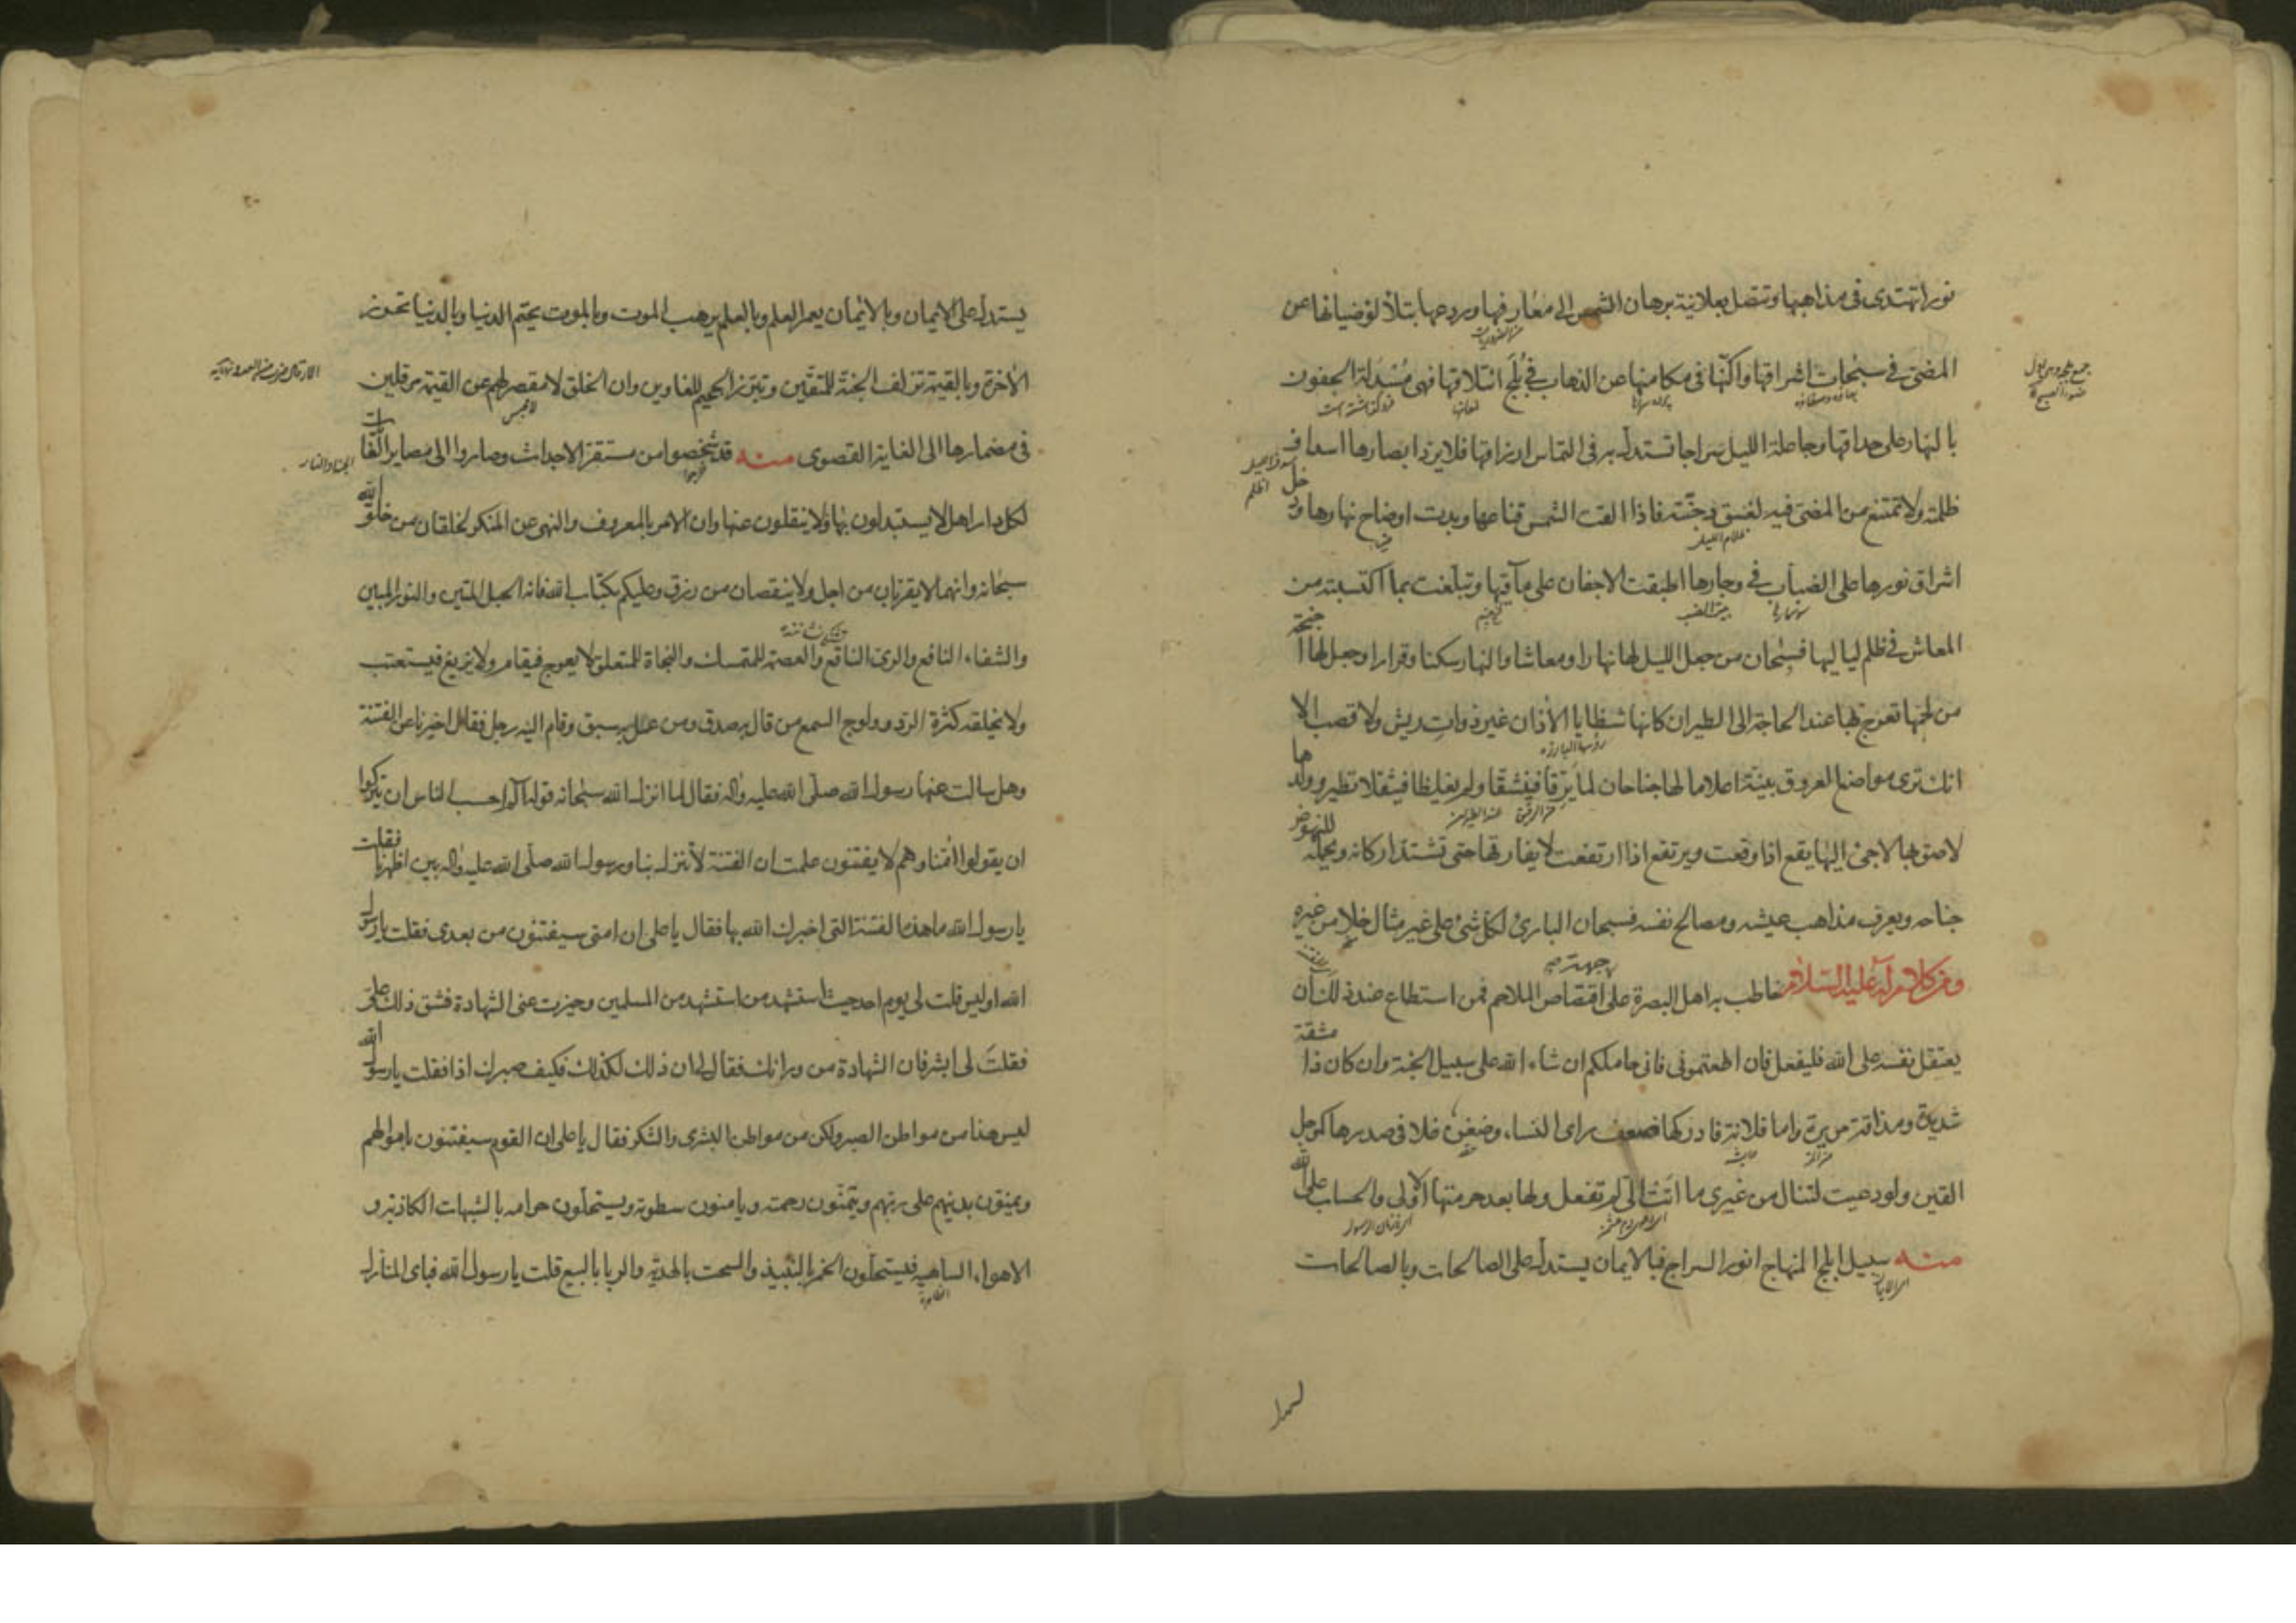 نورا تهتدى فى مذاهبها وتتصل بعلانية برهان الشمس الى معارفها وردعها بتلألؤ ضيائها عن
المضى فى سبحات اشراقها واكنها فى مكامنها عن الذهاب فى بلج ائتلاقها فهى مسدلة الجفون
بالنهار على حداقها وجاعلة الليل سراجا تستدل به فى التماس ارزاقها فلا يرد ابصارها اسداف
ظلمته ولا تمتنع من المضى فيه لغسق دجنته فاذا القت الشمس قناعها وبدت اوضاح نهارها ودخل
اشراق نورها على الضباب فى وجارها اطبقت الاجفان على مآقيها وتبلغت بما اكتسبته من
المعاش فى ظلم لياليها فسبحان من جعل الليل لها نهارا ومعاشا والنهار سكنا وقرارا وجعل لها اجنحة
من لحمها تعرج بها عند الحاجة الى الطيران كانها شظايا الآذان غير ذوات ريش ولا قصب الا
انك ترى مواضع العروق بينة اعلاما لها جناحان لما يرقا فينشقا ولم يغلظا فيثقلا تطير وولدها
لاصق بها لاجئ اليها يقع اذا وقعت ويرتفع اذا ارتفعت لا يفارقها حتى تشتد اركانه ويحمله للنهوض
جناحه ويعرف مذاهب عيشه ومصالح نفسه فسبحان البارئ لكل شئ على غير مثال خلا من غيره
ومن كلام له عليه السلام خاطب به اهل البصرة على جهة اقتصاص الملاحم فمن استطاع عند ذلك ان
يعتقل نفسه على الله فليفعل فان اطعتمونى فانى حاملكم ان شاء الله على سبيل الجنة وان كان ذا مشقة
شديدة ومذاقة مريرة واما فلانة فادركها ضعف راى النساء وضغن غلا فى صدرها كمرجل
القين ولو دعيت لتنال من غيرى ما اتت الى لم تفعل ولها بعد حرمتها الاولى والحساب على الله
منه سبيل ابلج المنهاج انور السراج فبالايمان يستدل على الصالحات وبالصالحات
يستدل على الايمان وبالايمان يعمر العلم وبالعلم يرهب الموت وبالموت يختم الدنيا وبالدنيا تحرز
الآخرة وبالقيمة تزلف الجنة للمتقين وتبرز الجحيم للغاوين وان الخلق لا مقصر لهم عن القيمة مرقلين
فى مضمارها الى الغاية القصوى منه قد شخصوا من مستقر الاجداث وصاروا الى مصاير الغايات
لكل دار اهل لا يستبدلون بها ولا ينقلون عنها وان الامر بالمعروف والنهى عن المنكر لخلقان من خلق الله
سبحانه وانهما لا يقربان من اجل ولا ينقصان من رزق وعليكم بكتاب الله فانه الحبل المتين والنور المبين
والشفاء النافع والرى الناقع والعصمة للمتمسك والنجاة للمتعلق لا يعوج فيقام ولا يزيغ فيستعتب
ولا يخلقه كثرة الرد وولوج السمع من قال به صدق ومن عمل به سبق وقام اليه رجل فقال اخبرنا عن الفتنة
وهل سالت عنها رسول الله صلى الله عليه واله فقال لما انزل الله سبحانه قوله الم احسب الناس ان يتركوا
ان يقولوا امنا وهم لا يفتنون علمت ان الفتنة لا تنزل بنا ورسول الله صلى الله عليه واله بين اظهرنا فقلت
يا رسول الله ما هذه الفتنة التى اخبرك الله بها فقال يا على ان امتى سيفتنون من بعدى فقلت يا رسول
الله اوليس قلت لى يوم احد حيث استشهد من استشهد من المسلمين وحيزت عنى الشهادة فشق ذلك على
فقلت لى ابشر فان الشهادة من ورائك فقال لى ان ذلك لكذلك فكيف صبرك اذا فقلت يا رسول الله
ليس هذا من مواطن الصبر ولكن من مواطن البشرى والشكر فقال يا على ان القوم سيفتنون باموالهم
ويمنون بدينهم على ربهم ويتمنون رحمته ويامنون سطوته ويستحلون حرامه بالشبهات الكاذبة و
الاهواء الساهية فيستحلون الخمر بالنبيذ والسحت بالهدية والربا بالبيع قلت يا رسول الله فباى المنازل